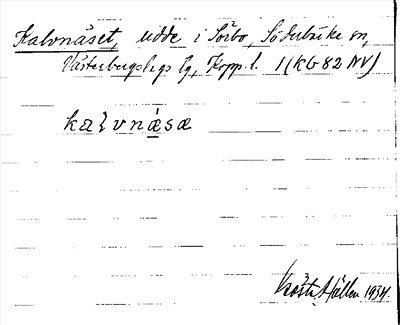 Kalvnäset, udde i Sörbo, Söderbärke sn,
Västerbergslags lg, Kopp. l. 1 (KG 82 NV)
kaʅvnæ̀sæ
Gösta Hällen 1934.